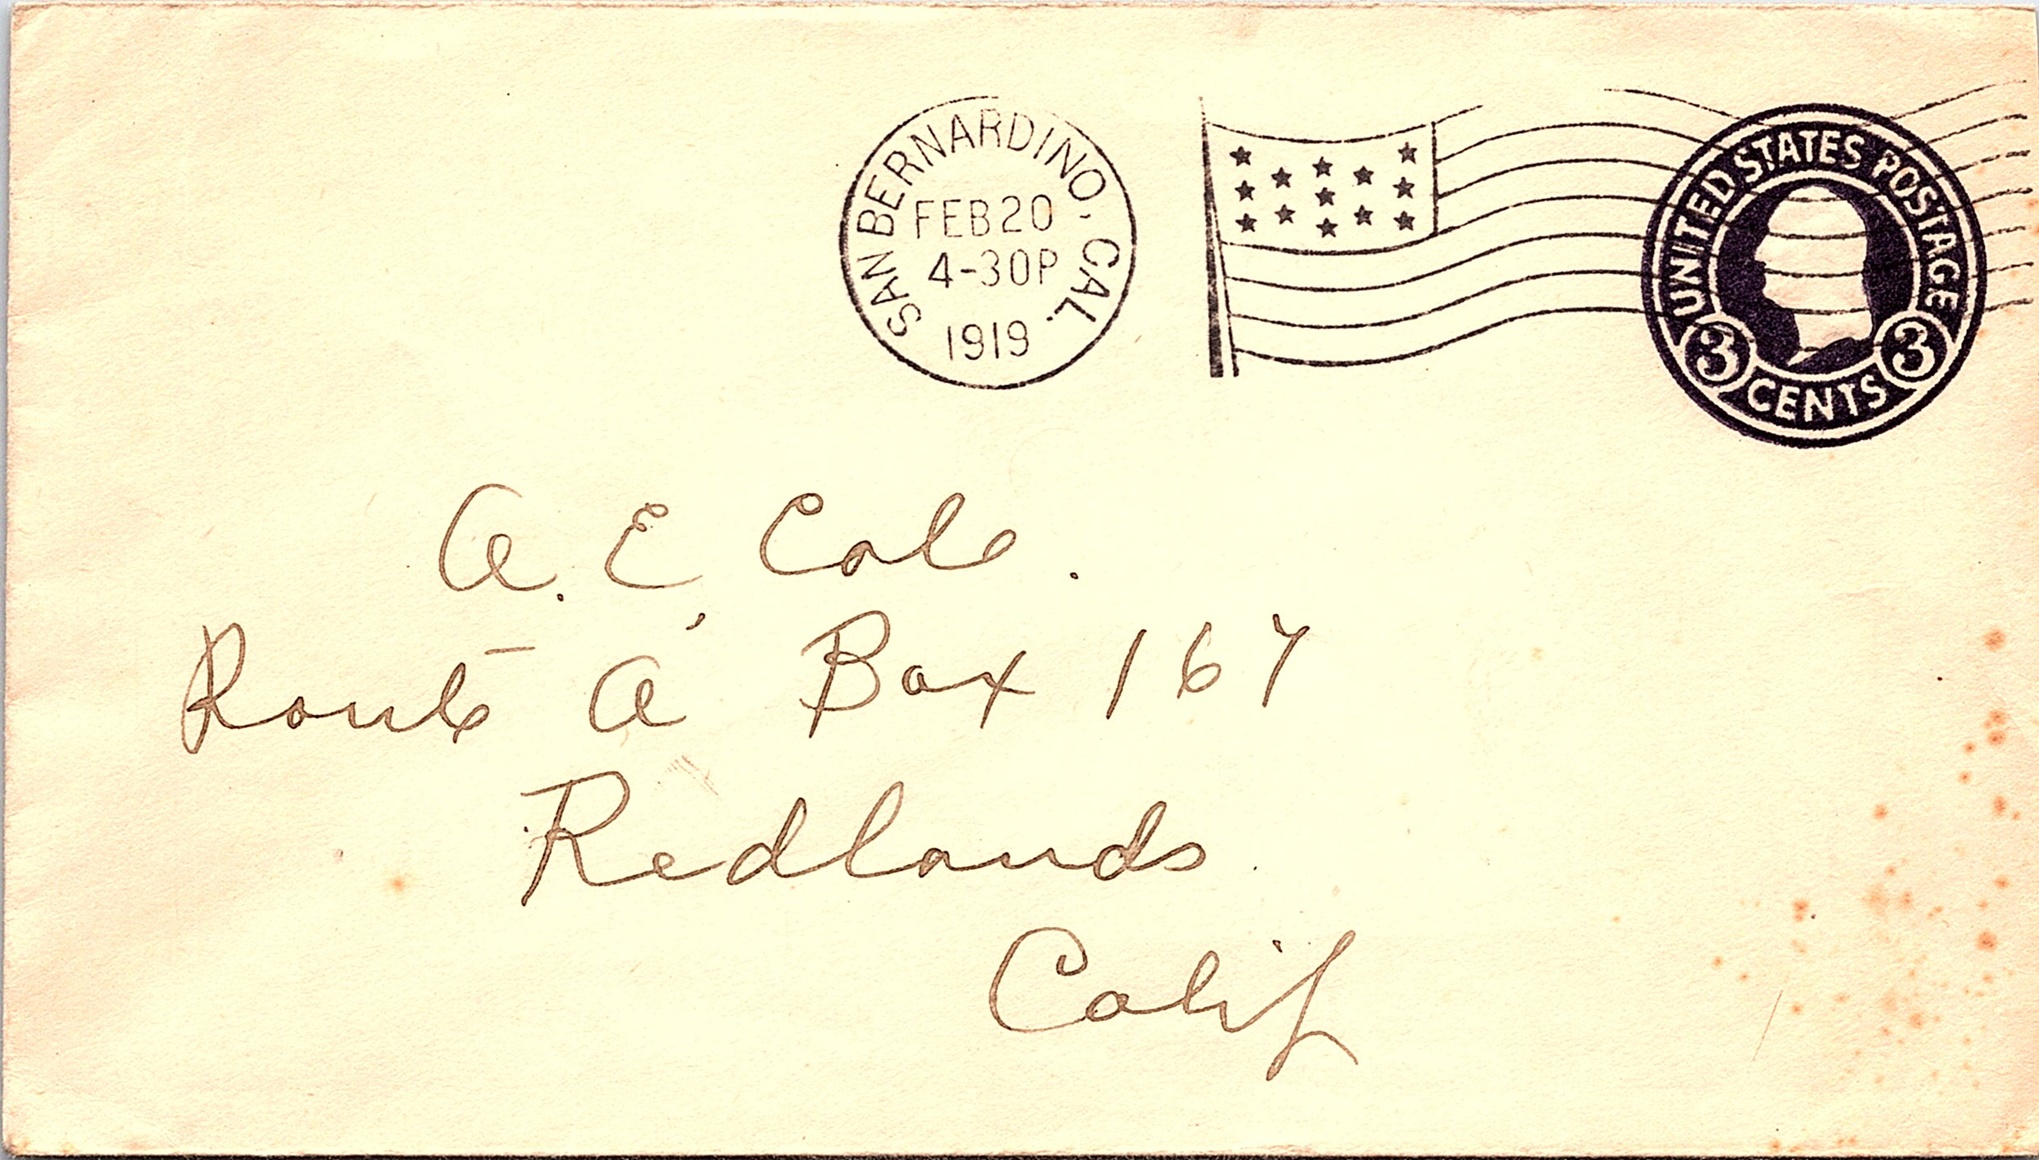 SAN BERNARDINO, CAL.
FEB 20
4-30P
1919
UNITED STATES POSTAGE
3 CENTS 3
A. E. Cole.
Route "A" Box 167
Redlands.
Calif